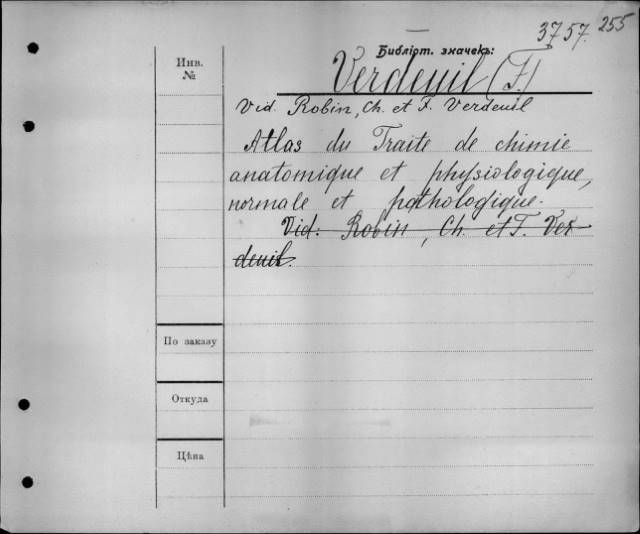 3757. 255
Библіот. значекъ:
Инв.
№
Verdeuil (F.)
Vid. Robin, Ch. et F. Verdeuil
Atlas du Traite de chimie
anatomique et physiologique,
normale et pathologique.
Vid: Robin, Ch. et F. Ver-
deuil.
По заказу
Откуда
Цѣна